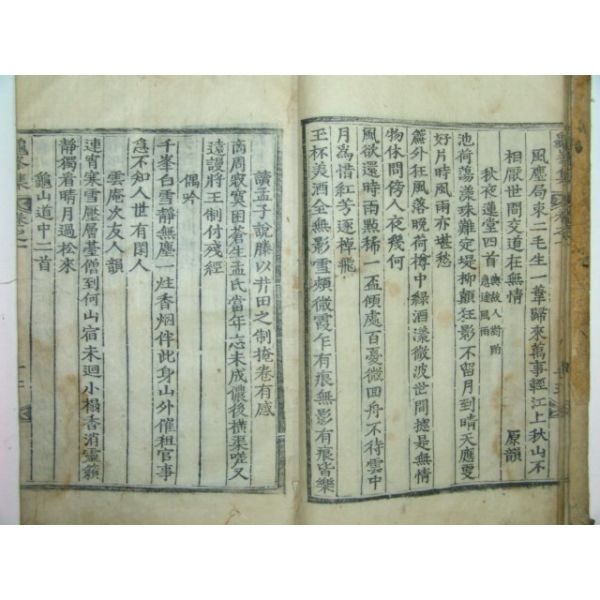 龜峯集 卷之一
風塵局束二毛生一葦歸來萬事輕江上秋山不
相厭世間交道在無情 原韻
秋夜蓮堂四首 與故人對酌應逢風雨
池荷蕩漾珠難定堤柳顚狂影不留月到晴天應更
好片時風雨亦堪愁
簷外狂風落晩荷樽中綠酒漾微波世間摠是無情
物休問傍人夜幾何
風欲還時雨點稀一盃傾處百憂微回舟不待雲中
月爲惜紅芳逐棹飛
玉杯美酒全無影雪頰微霞乍有痕無影有痕皆樂
讀孟子說滕以井田之制掩卷有感
商周寂寞困蒼生孟氏當年志未成儂後橫渠嗟又
遠謾將王制付殘經
偶吟
千峯白雪靜無塵一炷香烟伴此身山外催租官事
急不知人世有閑人
雲庵次友人韻
連宵寒雪壓層臺僧到何山宿未迴小榻香消靈籟
靜獨看晴月過松來
龜山道中二首
龜峯集 卷之一